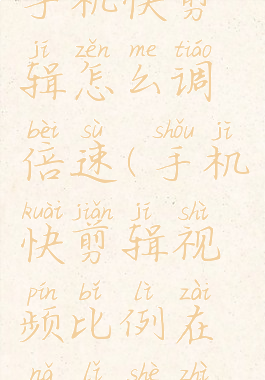 手机快剪
jí zěn me tiáo
辑怎么调
bèi sù shǒu jī
倍速(手机
kuài jiǎn jí shì
快剪辑视
pín bǐ lì zài
频比例在
nǎ lǐ shè zhì